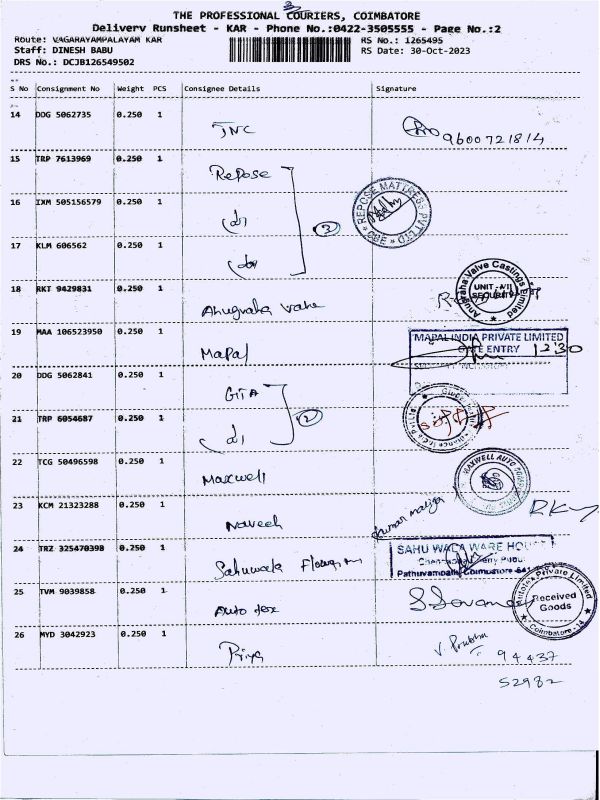 3
THE PROFESSIONAL COURIERS, COIMBATORE
Delivery Runsheet - KAR - Phone No.:0422-3505555 - Page No.:2
Route: VAGARAYAMPALAYAM KAR
RS No.: 1265495
Staff: DINESH BABU
RS Date: 30-Oct-2023
DRS No.: DCJB126549502
S No Consignment No Weight PCS Consignee Details Signature
14 DDG 5062735 0.250 1
JNC
9600721814
15 TRP 7613969 0.250 1
Repose
16 IXM 505156579 0.250 1
do
3
REPOSE MATTRESS PVT LTD
CBE
17 KLM 606562 0.250 1
do
18 RKT 9429831 0.250 1
Anugraha valve
Anugraha Valve Castings Limited
UNIT - VII
SECURITY
19 MAA 106523950 0.250 1
Mapal
MAPAL INDIA PRIVATE LIMITED
GATE ENTRY 12:30
20 DDG 5062841 0.250 1
GTA
21 TRP 6054687 0.250 1
do
2
22 TCG 50496598 0.250 1
Maxwell
MAXWELL AUTO
23 KCM 21323288 0.250 1
Naveen
24 TRZ 325470398 0.250 1
Sahuwala
SAHU WALA WARE HOUSE
Pathuvampalli, Coimbatore
25 TVM 9039858 0.250 1
Auto tex
Private Limited
Received
Goods
Coimbatore - 14
26 MYD 3042923 0.250 1
Priya
V. Prabhu
94437
52982